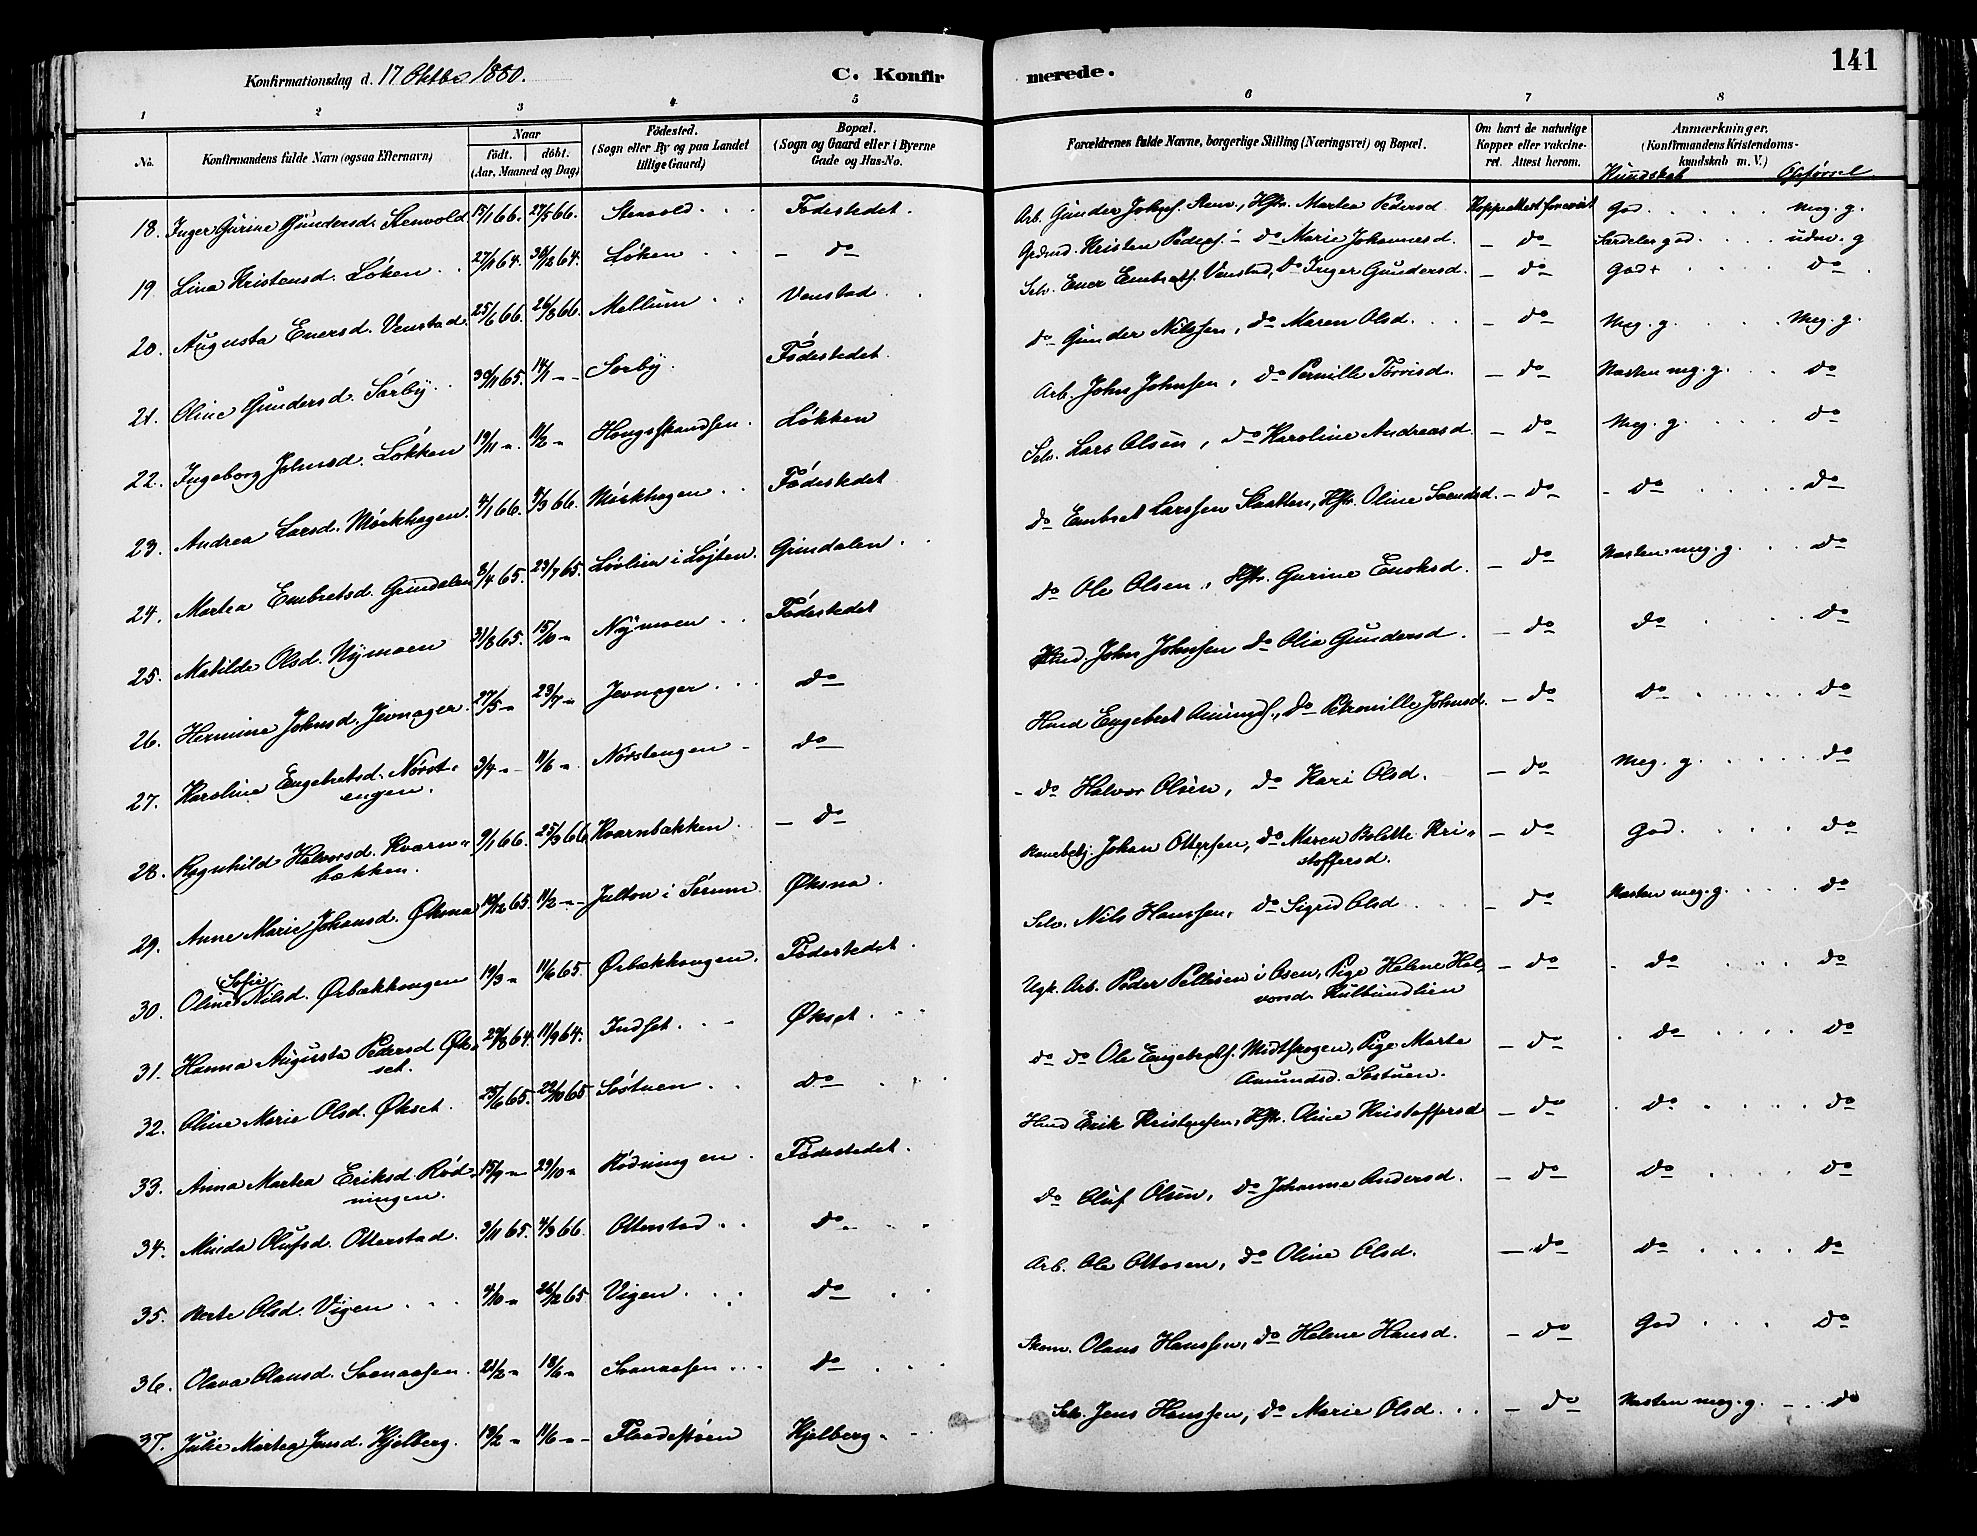 Konfirmationsdag d. 17 Oktbr 1880.
C. Konfir
merede.
141
1 2 3 4 5 6 7 8
No. Konfirmandens fulde Navn (ogsaa Efternavn) Naar født. døbt. (Aar, Maaned og Dag) Fødested. (Sogn eller By og paa Landet tillige Gaard) Bopæl. (Sogn og Gaard eller i Byerne Gade og Hus-No. Forældrenes fulde Navne, borgerlige Stilling (Næringsvei) og Bopæl. Om havt de naturlige Kopper eller vaccineret. Attest herom. Anmærkninger. (Konfirmandens Kristendomskundskab m. V.) Kundskab Opførsel
18. Inger Gurine Gundersd. Stenvold 15/1 66. 27/5 66. Stenvold Fødestedet. Arb. Gunder Johns. Sten., Hstr. Martea Pedersd. Koppeattest forevist God. Meg. g.
19. Lina Kristensd. Løken 27/11 64. 30/12 64. Løken do Grdmd. Kristen Peders. do Marie Johannesd. do Særdeles god udm. g
20. Augusta Enersd. Venstad 25/6 66. 26/8 66. Mellum Venstad Selv. Ener Embrets. Venstad, do Inger Gundersd. do God+ do
21. Oline Gundersd. Sørby 30/11 65. 14/1 Sørby. Fødestedet. do Gunder Nilssen, do Maren Olsd. do Meg. g. Meg. g.
22. Ingeborg Johnsd. Løkken 19/11 11/2 Løkken Arb. John Johnsen, do Pernille do Næsten meg. g. do
23. Andrea Larsd. Mørkhagen. 4/1 66. 4/3 66. Mørkhagen Fødestedet Selv. Lars Olsen, do Karoline Andreasd. do Meg. g. do
24. Martea Embretsd. Grindalen 8/4 65. 23/7 65. Løvlien i Løjten. Grindalen do Embret Larssen Hstr. Oline Svendsd. do do do
25. Matilde Olsd. Nymoen 31/8 65. 15/10 Nymoen Fødestedet do Ole Olsen, Hstr. Gurine Enoksd. do Næsten meg. g. do
26. Hermine Johnsd. Jevnager. 27/5 23/7 Jevnager do Husmd. John Johnsen do Olia Gundersd. do do do
27. Karoline Engebretsd. Nørstengen. 3/4 11/6 Nørstengen do Husmd Engebret Amunds., do Petronille Johnsd. do do do
28. Ragnhild Halvorsd. Kvarnbækken. 9/1 66. 25/3 66 Kvarnbækken do do Halvor Olsen, do Kari Olsd. do Meg. g. do
29. Anne Marie Johansd. Øksna 19/12 65. 11/2 Julton i Sørum Øksna. Johan Ottersen, do Maren Bolette Kristoffersd. do God. do
30. Oline Sofie Nilsd. Ørbækhougen 19/3 11/6 65. Ørbækhougen. Fødestedet Selv. Nils Hanssen, do Sigrid Olsd do Næsten meg. g. do
31. Hanna Augusta Pedersd Økset. 29/8 64. 11/9 64. Indset Økset Ugk. Arb. Peder Pettersen i Osen, Pige Helene Halvorsd. Kulbundlien do do do
32. Oline Marie Olsd. Økset. 25/6 65. 22/10 65 Søstuen do do do Ole Engebrets. Midtskogen, Pige Marte Amundsd. Søstuen. do do do
33. Anna Martea Eriksd Rødningen. 15/9 29/10 Rødningen Fødestedet. Husmd Erik Kristensen, Hstr. Oline Kristoffersd do do do
34. Minda Olufsd. Otterstad. 3/11 65. 4/3 66 Otterstad do do Oluf Olsen, do Johanne Andersd. do do do
35. Berte Olsd. Vigen 4/10 26/12 65 Vigen do Arb. Ole Ottosen, do Oline Olsd. do do do
36. Olava Olausd. Svenaasen 21/2 18/6 Svenaasen do Skom. Olaus Hanssen, do Helene Hansd. do God do
37. Julie Martea Jensd. Kjølberg. 19/2 11/6 Kjølberg. Selv. Jens Hanssen, do Marie Olsd. do Næsten meg. g. do